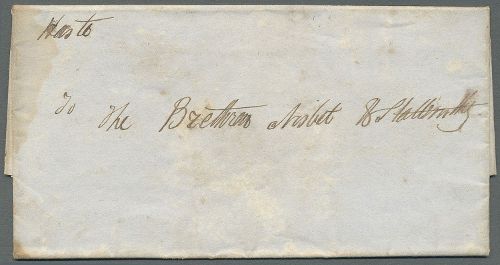 Haste
To The Brethren Nisbet & Stallworthy